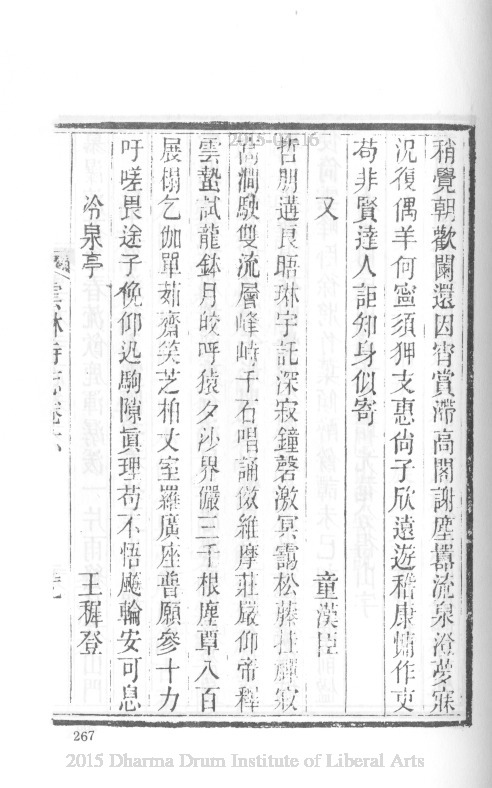 稍覺朝歡闌還因宵賞滯高閣謝塵囂流泉澄夢寐
況復偶羊何寧須狎支惠尙子欣遠遊稽康慵作吏
苟非賢達人詎知身似寄
又 童漢臣
哲朋遘良晤琳宇託深寂鐘磬激冥靄松藤挂禪寂
澗駛雙流層峰峙千石唱誦倣維摩莊嚴仰帝釋
雲蟄試龍鉢月皎呼猿夕沙界儼三千根塵覃八百
展榻乞伽單茹齋笑芝柏丈室羅廣座普願參十力
吁嗟畏途子俛仰迅駒隙眞理苟不悟飈輪安可息
冷泉亭 王穉登
雲林寺志卷六
267
2015 Dharma Drum Institute of Liberal Arts